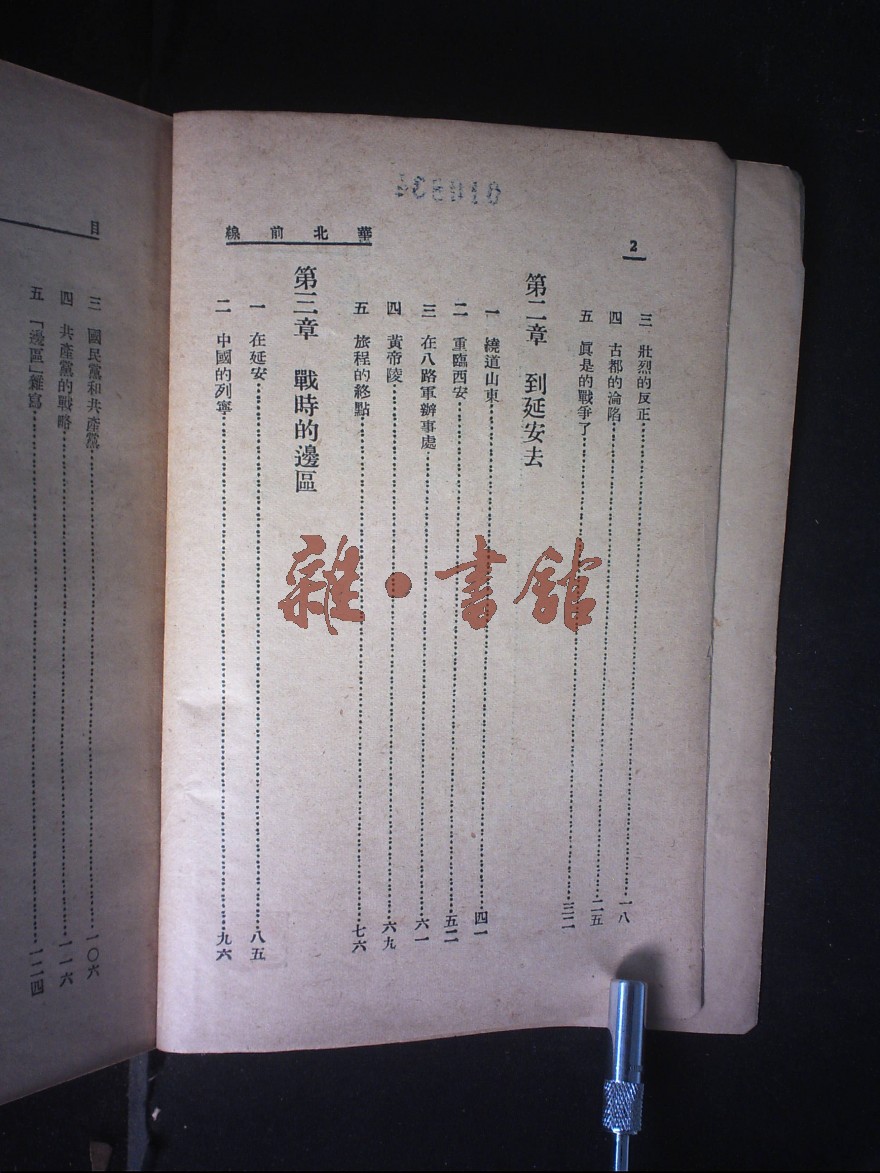 2
華北前線
三 壯烈的反正……一八
四 古都的淪陷……二五
五 眞是的戰爭了……三二
第二章 到延安去
一 繞道山東……四一
二 重臨西安……五二
三 在八路軍辦事處……六一
四 黃帝陵……六九
五 旅程的終點……七六
第三章 戰時的邊區
一 在延安……八五
二 中國的列寧……九六
目
三 國民黨和共產黨……一〇六
四 共產黨的戰略……一一六
五 「邊區」雜寫……一二四
雜·書館